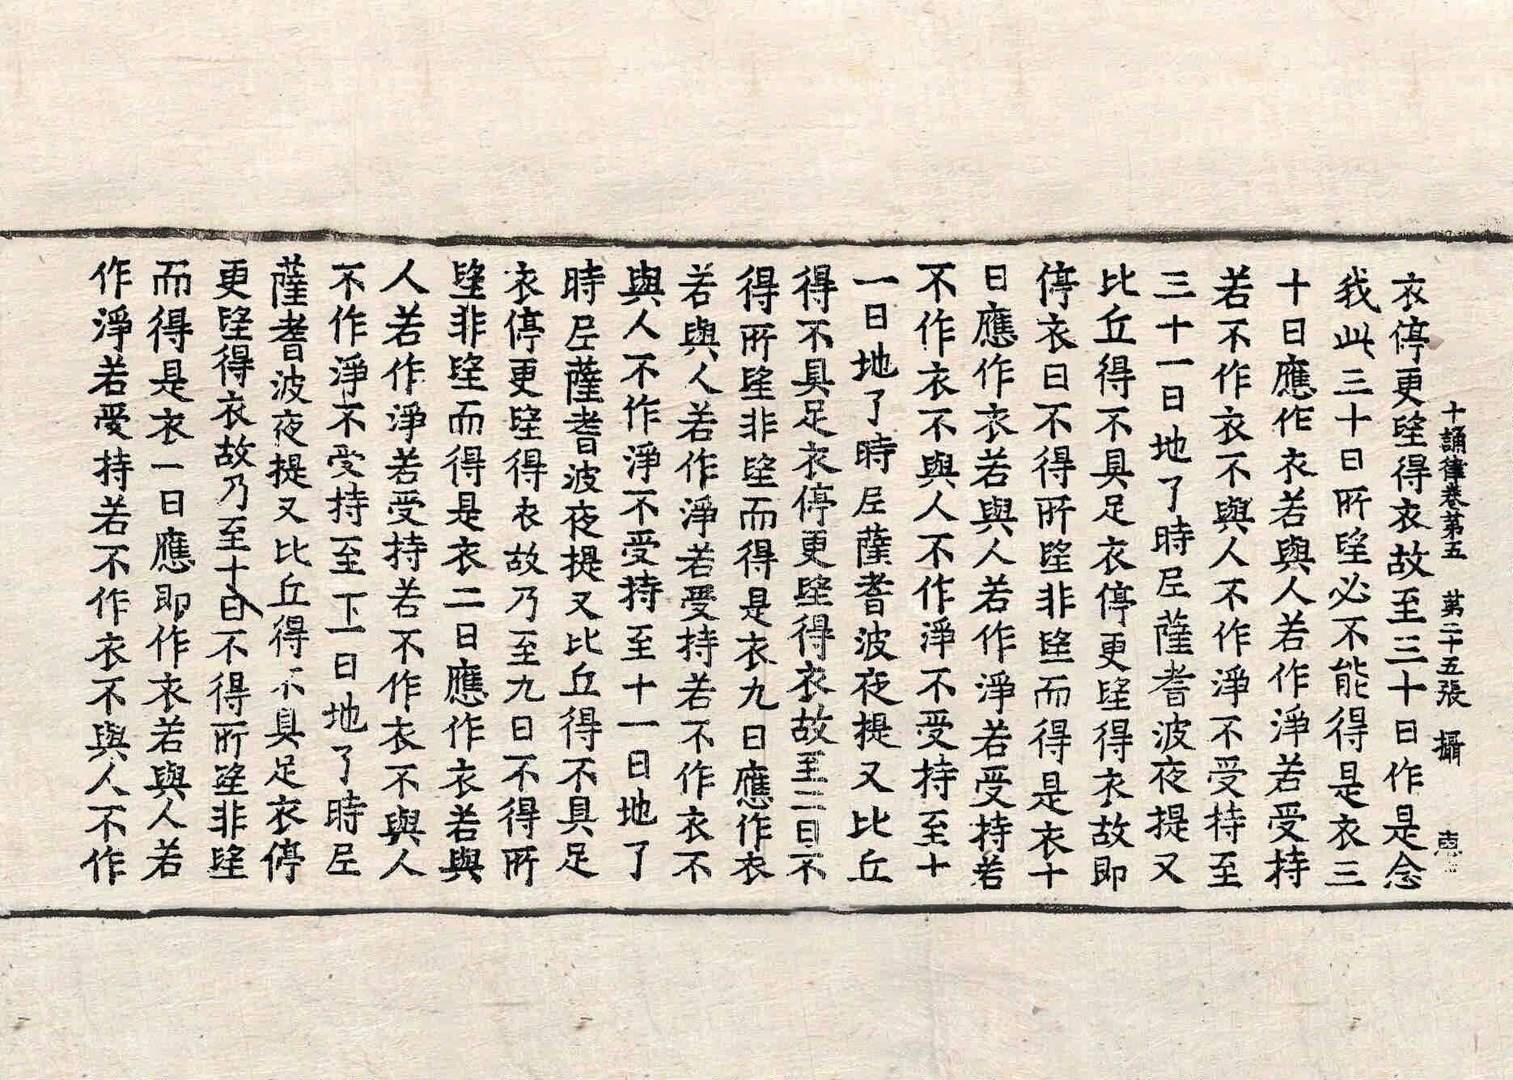 十誦律卷第五 第二十五張 攝
衣停更望得衣故至三十日作是念
我此三十日所望必不能得是衣三
十日應作衣若與人若作淨若受持
若不作衣不與人不作淨不受持至
三十一日地了時尼薩耆波夜提又
比丘得不具足衣停更望得衣故即
停衣日不得所望非望而得是衣十
日應作衣若與人若作淨若受持若
不作衣不與人不作淨不受持至十
一日地了時尼薩耆波夜提又比丘
得不具足衣停更望得衣故至二日不
得所望非望而得是衣九日應作衣
若與人若作淨若受持若不作衣不
與人不作淨不受持至十一日地了
時尼薩耆波夜提又比丘得不具足
衣停更望得衣故乃至九日不得所
望非望而得是衣二日應作衣若與
人若作淨若受持若不作衣不與人
不作淨不受持至下一日地了時尼
薩耆波夜提又比丘得不具足衣停
更望得衣故乃至十日不得所望非望
而得是衣一日應即作衣若與人若
作淨若受持若不作衣不與人不作